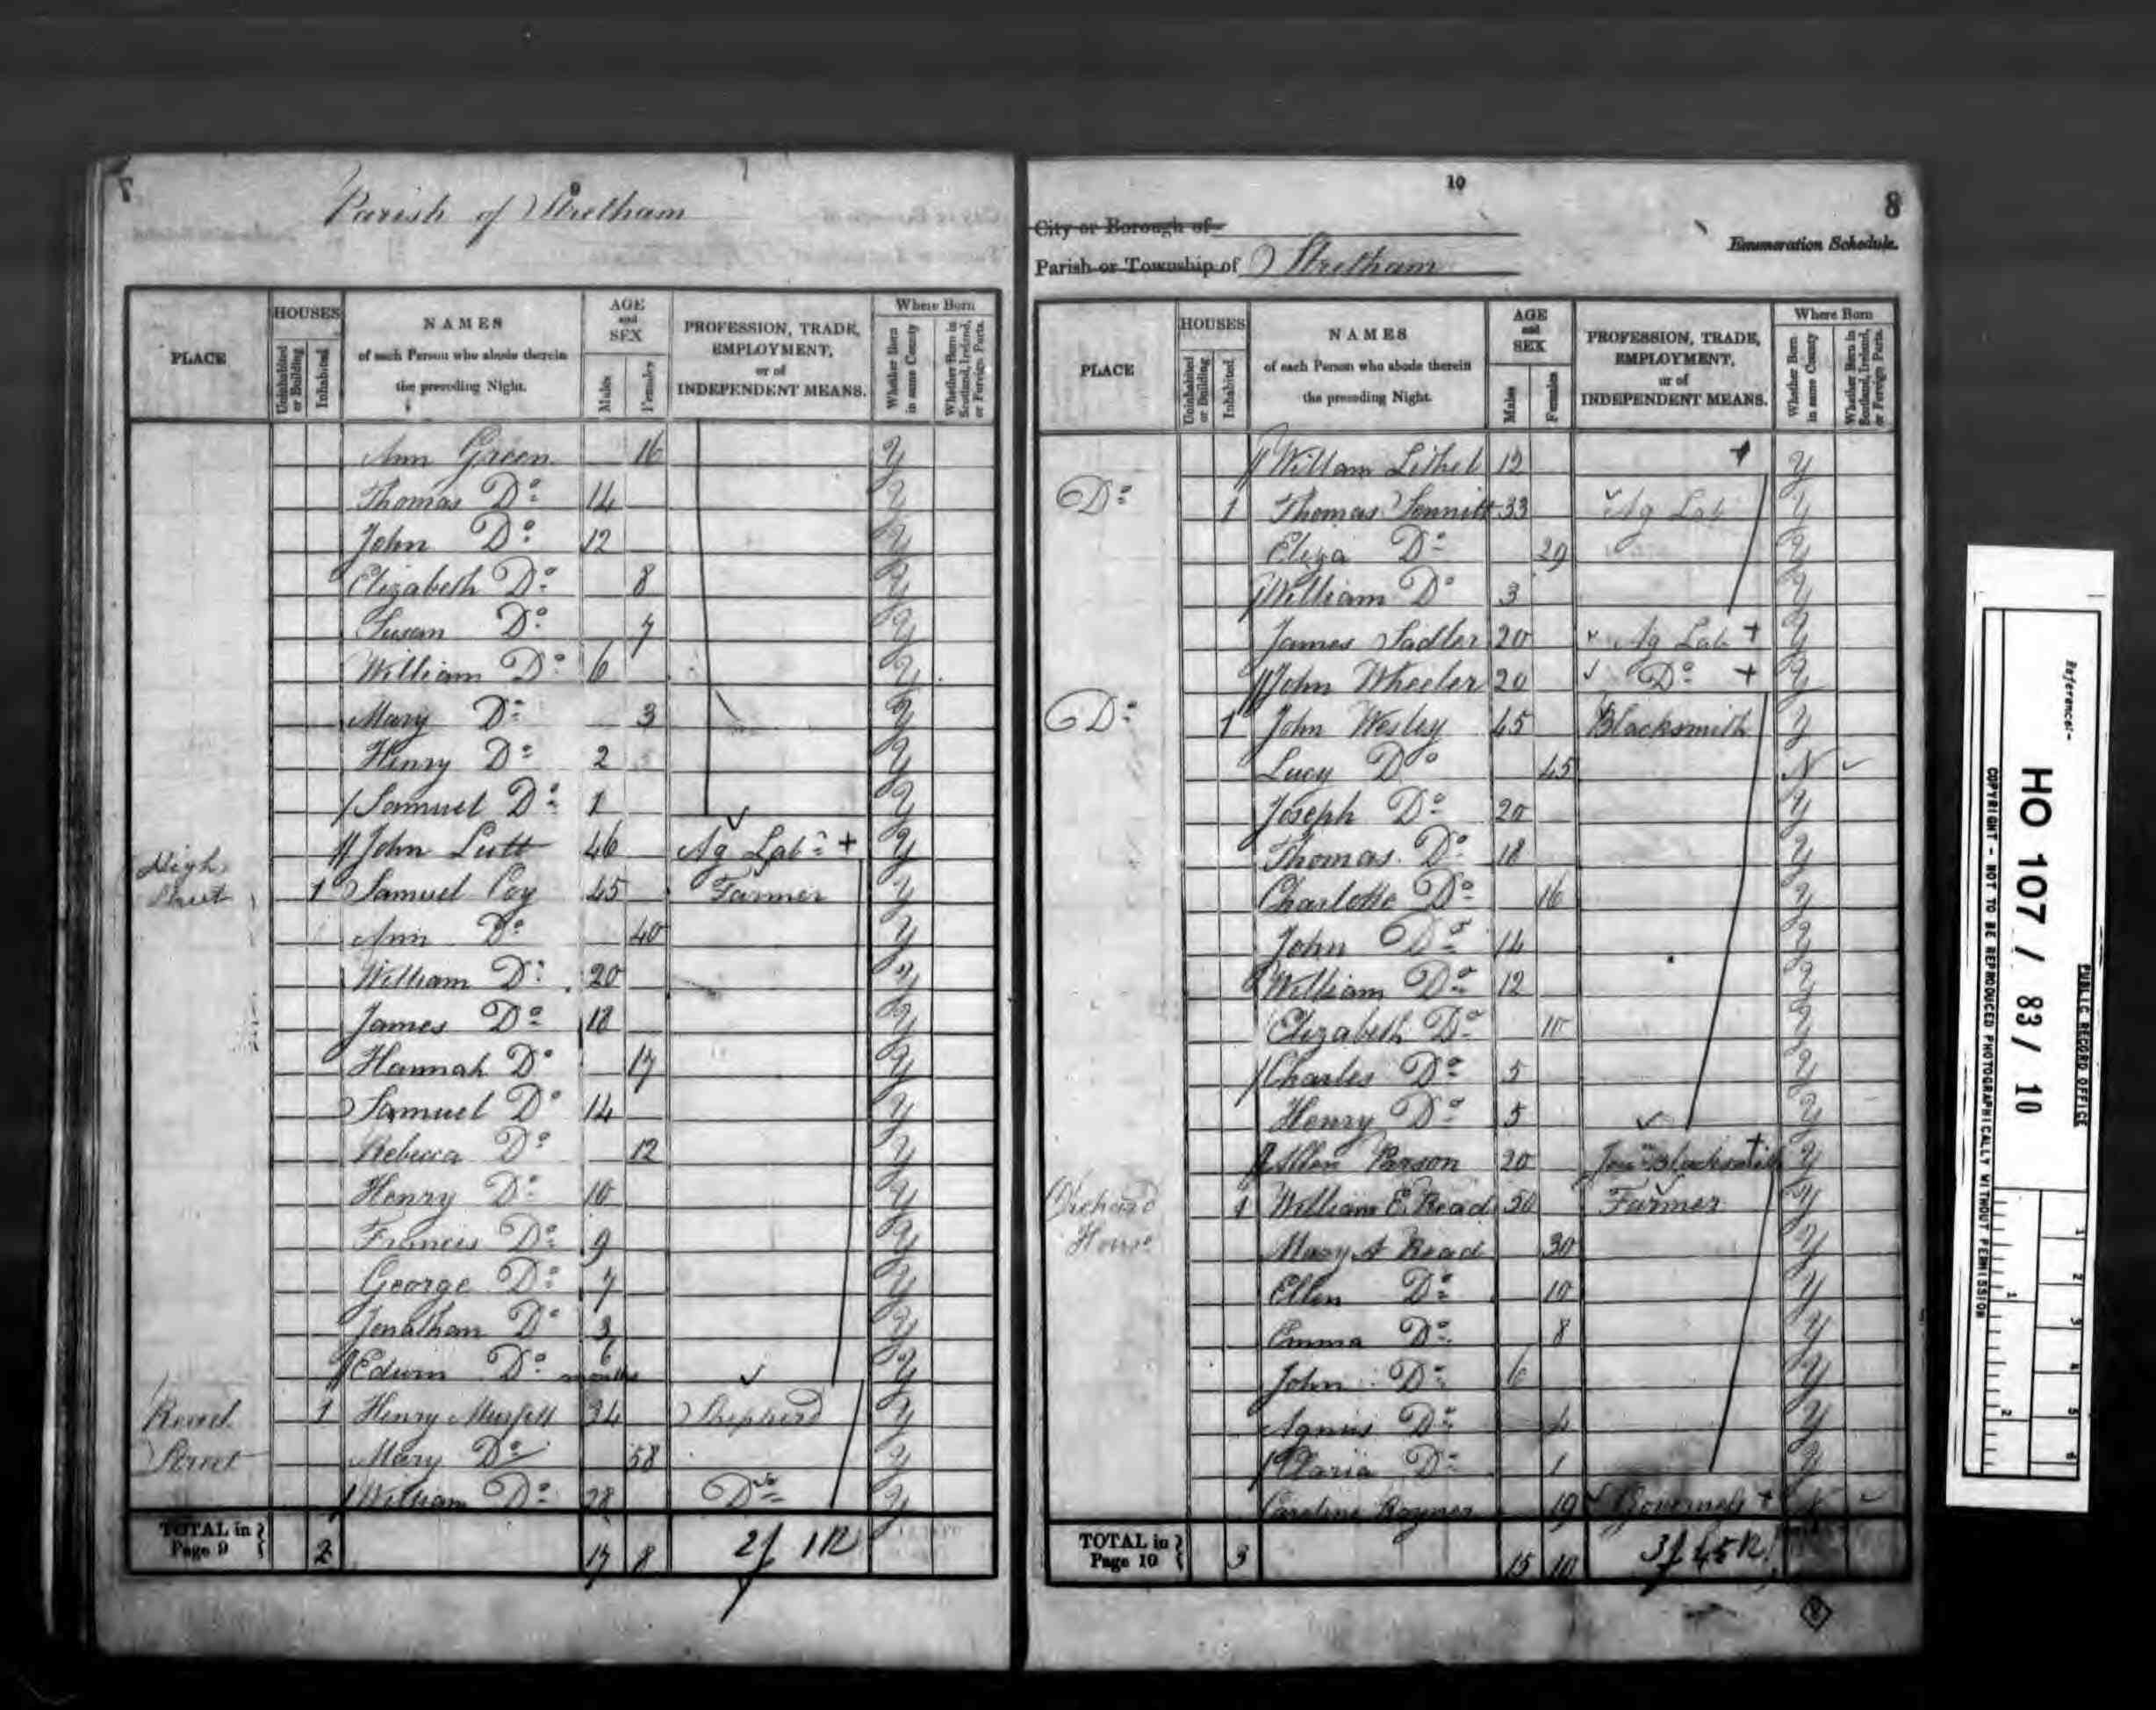 7
9
Parish of Stretham
PLACE
HOUSES
Uninhabited or Building
Inhabited
NAMES
of each Person who abode therein
the preceding Night.
AGE
and
SEX
Males
Females
PROFESSION, TRADE,
EMPLOYMENT,
or of
INDEPENDENT MEANS.
Where Born
Whether Born in same County
Whether Born in Scotland, Ireland, or Foreign Parts.
Ann Green 16 Y
Thomas Do 14 Y
John Do 12 Y
Elizabeth Do 8 Y
Susan Do 7 Y
William Do 6 Y
Mary Do 3 Y
Henry Do 2 Y
Samuel Do 1 Y
John Lutt 46 Ag Lab + Y
High Street 1 Samuel Coy 45 Farmer Y
Ann Do 40 Y
William Do 20 Y
James Do 18 Y
Hannah Do 17 Y
Samuel Do 14 Y
Rebecca Do 12 Y
Henry Do 10 Y
Frances Do 9 Y
George Do 7 Y
Jonathan Do 3 Y
Edwin Do 6 months Y
Street 1 Henry 34 Shepherd Y
Mary Do 58 Y
William Do 28 Do Y
TOTAL in Page 9 2 17 8 2f 1R
10
8
City or Borough of
Enumeration Schedule.
Parish or Township of Stretham
PLACE
HOUSES
Uninhabited or Building
Inhabited
NAMES
of each Person who abode therein
the preceding Night.
AGE
and
SEX
Males
Females
PROFESSION, TRADE,
EMPLOYMENT,
or of
INDEPENDENT MEANS.
Where Born
Whether Born in same County
Whether Born in Scotland, Ireland, or Foreign Parts.
Willam Lithel 12 + Y
Do 1 Thomas Sennitt 33 Ag Lab Y
Eliza Do 29 Y
William Do 3 Y
James Sadler 20 Ag Lab + Y
John Wheeler 20 Do + Y
Do 1 John Wesley 45 Blacksmith Y
Lucy Do 45 N
Joseph Do 20 Y
Thomas Do 18 Y
Charlotte Do 16 Y
John Do 14 Y
William Do 12 Y
Elizabeth Do 10 Y
Charles Do 5 Y
Henry Do 5 Y
Allen Parson 20 Jour Blacksmith + Y
Orchard House 1 William E. Read 50 Farmer Y
Mary A Read 30 Y
Ellen Do 10 Y
Emma Do 8 Y
John Do 6 Y
Agnus Do 4 Y
Maria Do 1 Y
Caroline 19 Governess + N
TOTAL in Page 10 3 15 10 3f
Reference:-
HO 107 / 83/ 10
PUBLIC RECORD OFFICE
COPYRIGHT - NOT TO BE REPRODUCED PHOTOGRAPHICALLY WITHOUT PERMISSION
1 2 3 4 5 6
1 2